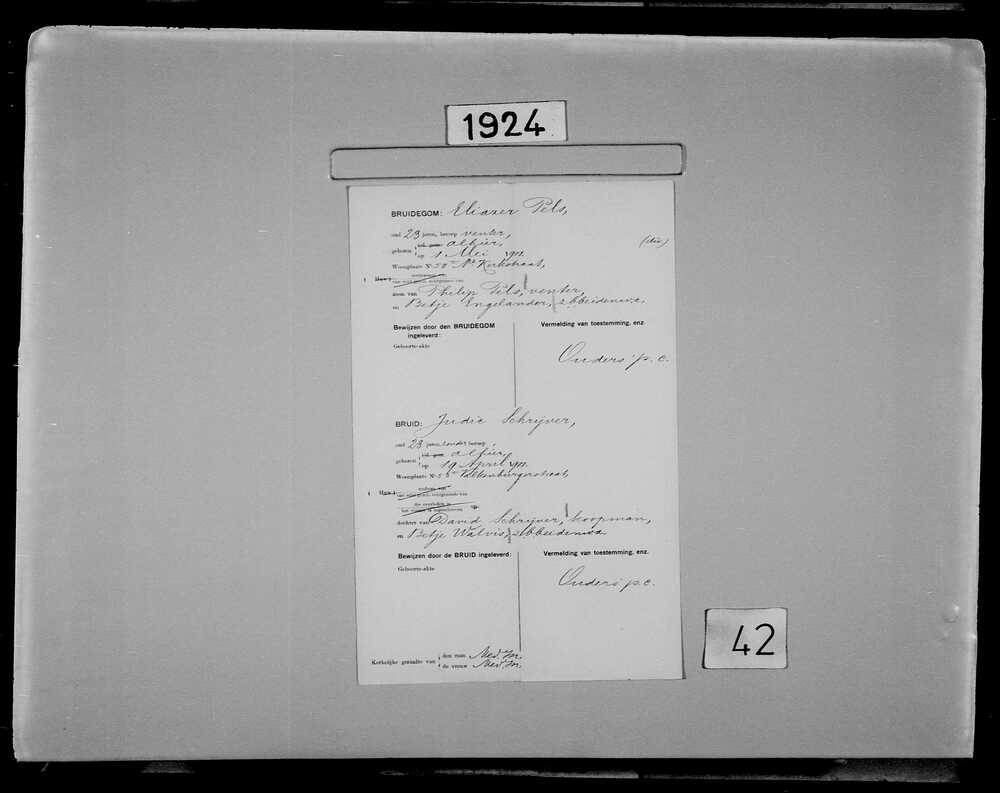 1924
BRUIDEGOM: Eliazer Pels,
oud 23 jaren, beroep venter,
geboren alhier,
op 1 Mei 1901.
(dis)
Woonplaats No. 58 Ne Kerkstraat,
zoon van Philip Pels, venter,
en Betje Engelander, z.b. beiden w.a.
Bewijzen door den BRUIDEGOM ingeleverd:
Vermelding van toestemming, enz.
Geboorte-akte
Ouders p.c.
BRUID: Judic Schrijver,
oud 23 jaren, zonder beroep,
geboren alhier,
op 19 April 1901.
Woonplaats No. Valkenburgerstraat,
dochter van David Schrijver, koopman,
en Betje Walvis, z.b. beiden w.a.
Bewijzen door de BRUID ingeleverd:
Vermelding van toestemming, enz.
Geboorte-akte
Ouders p.c.
Kerkelijke gezindte van
den man Ned. Isr.
de vrouw Ned. Isr.
42